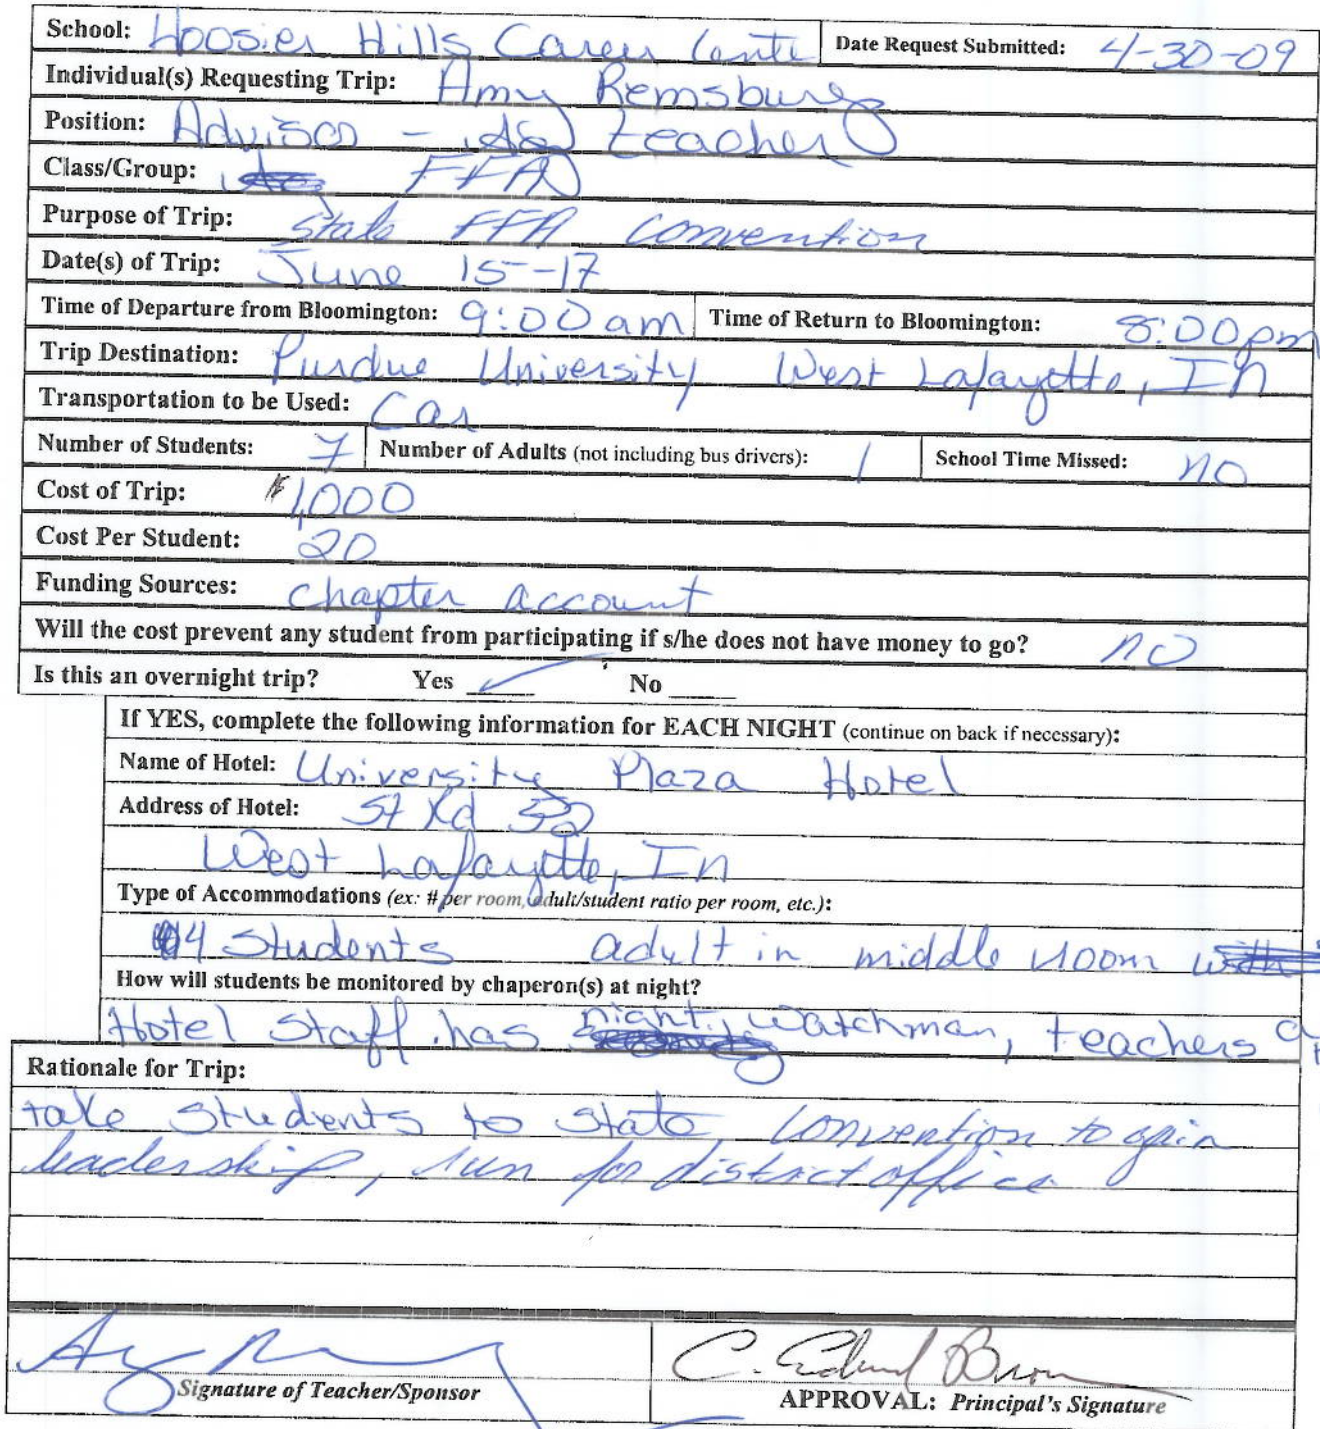 School: Hoosier Hills Career Cente Date Request Submitted: 4-30-09
Individual(s) Requesting Trip: Amy Remsburg
Position: Advisor - Ag teacher
Class/Group: FFA
Purpose of Trip: State FFA Convention
Date(s) of Trip: June 15-17
Time of Departure from Bloomington: 9:00 am Time of Return to Bloomington: 8:00pm
Trip Destination: Purdue University West Lafayette, In
Transportation to be Used: Car
Number of Students: 7 Number of Adults (not including bus drivers): 1 School Time Missed: no
Cost of Trip: $1,000
Cost Per Student: 20
Funding Sources: Chapter account
Will the cost prevent any student from participating if s/he does not have money to go? no
Is this an overnight trip? Yes ✓ No ____
If YES, complete the following information for EACH NIGHT (continue on back if necessary):
Name of Hotel: University Plaza Hotel
Address of Hotel: St Rd 52
West Lafayette, In
Type of Accommodations (ex: # per room, adult/student ratio per room, etc.):
4 Students adult in middle room
How will students be monitored by chaperon(s) at night?
Hotel Staff has night watchman, teachers
Rationale for Trip:
take Students to State Convention to gain
leadership, run for district office
Signature of Teacher/Sponsor
C. Edward Brown
APPROVAL: Principal's Signature